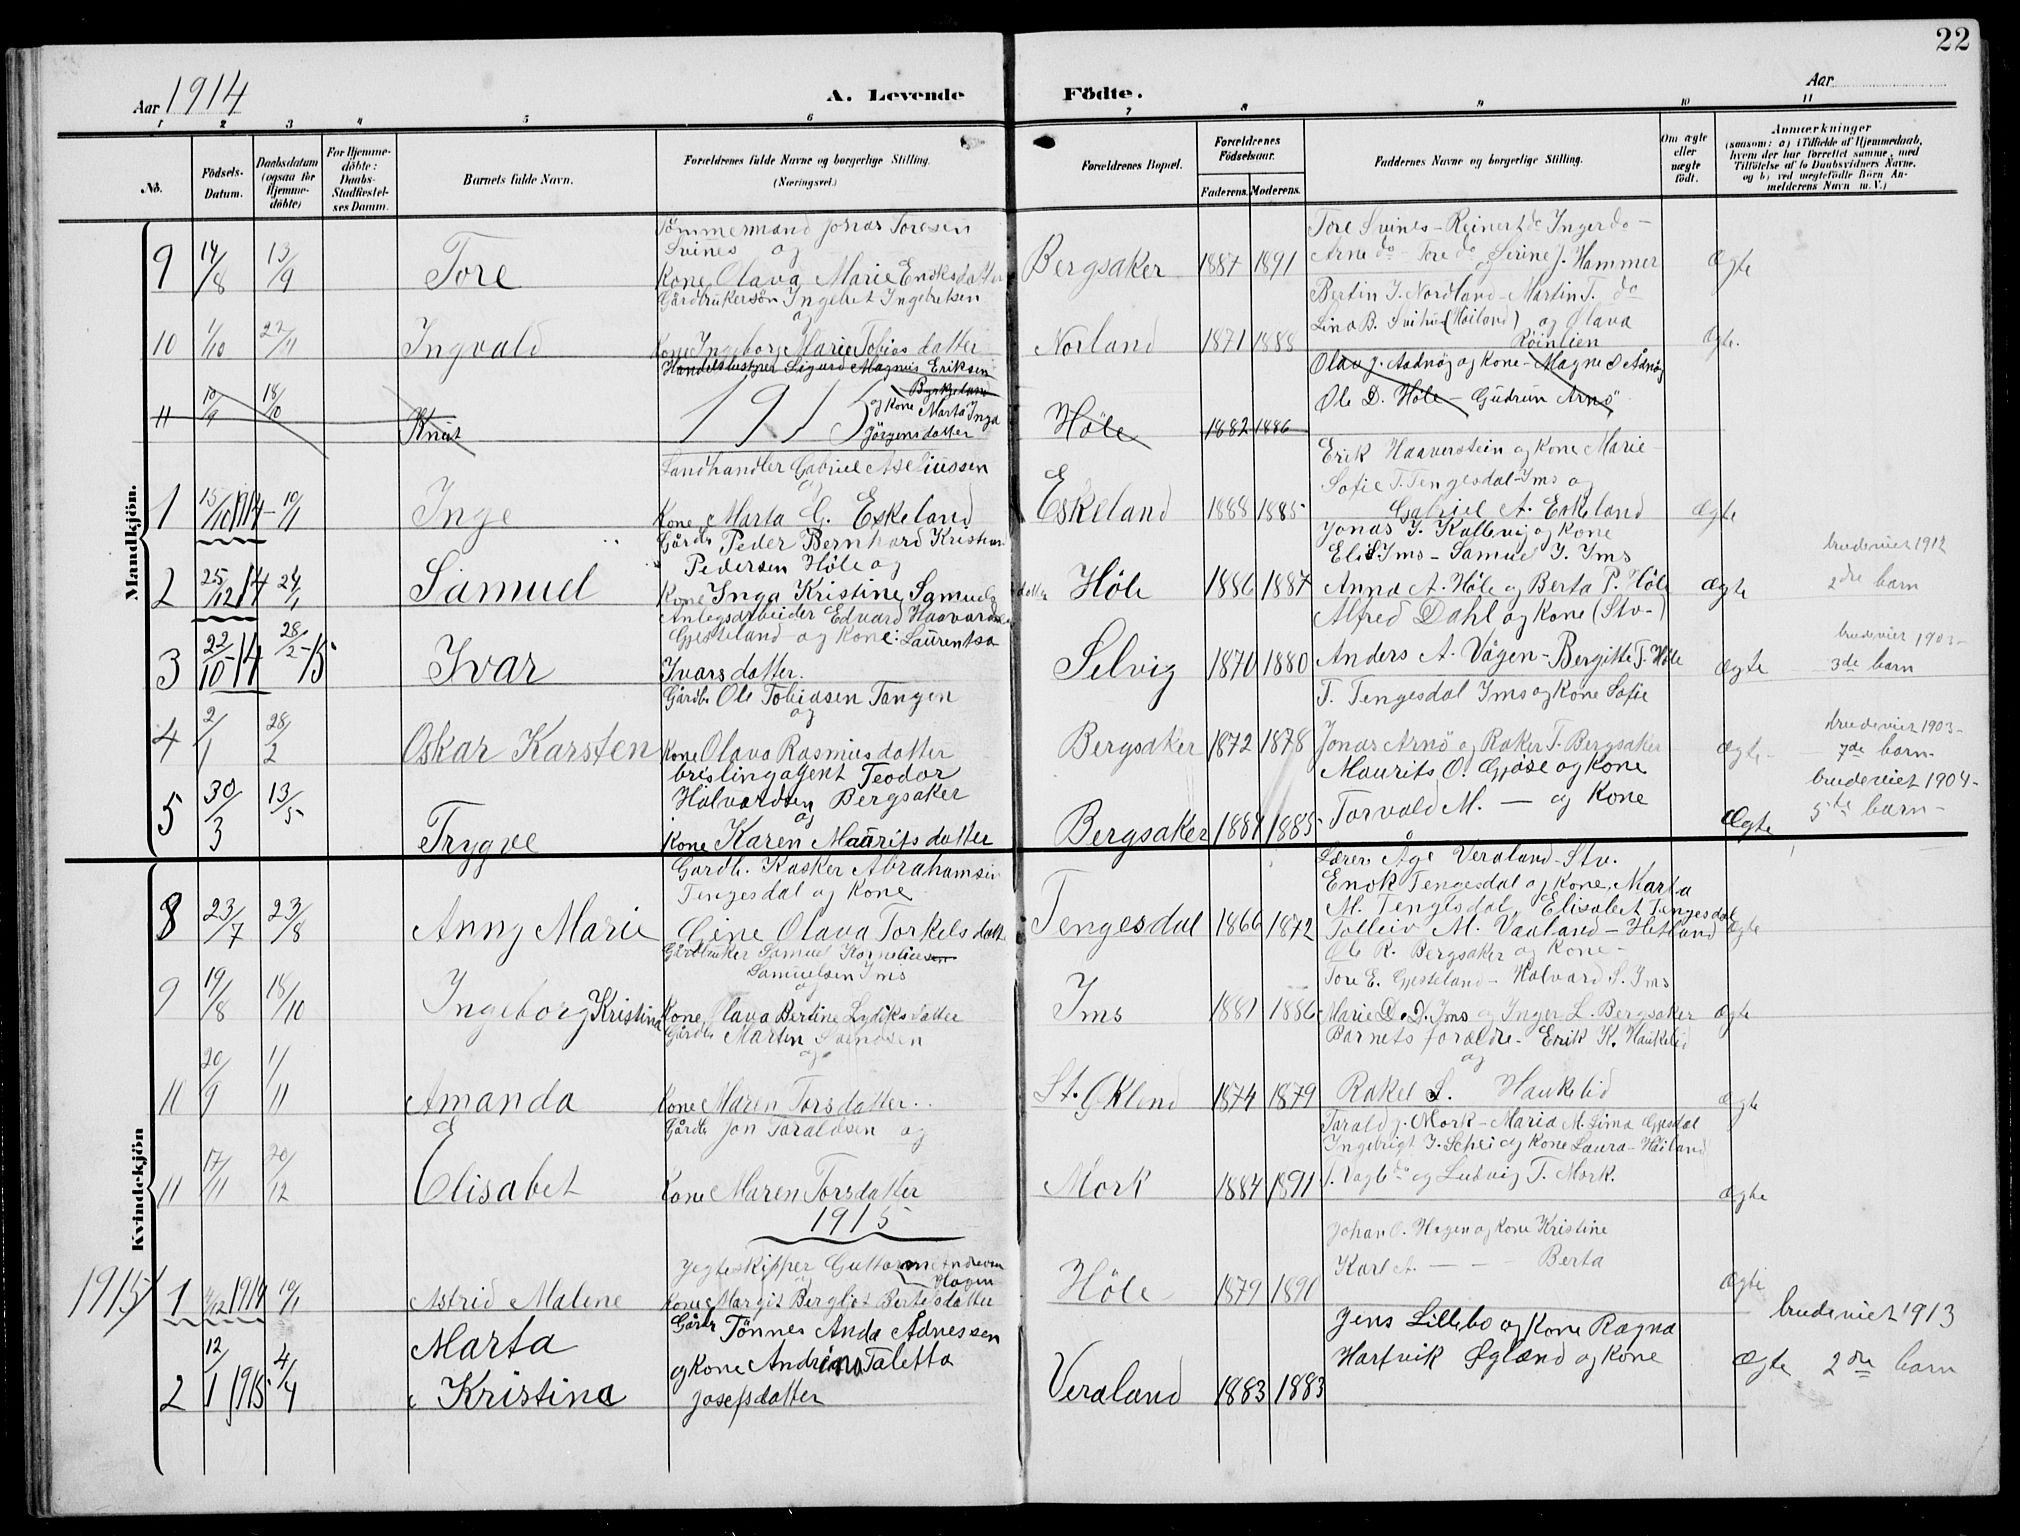 22
Aar 1914
A. Levende Födte.
Aar
1 2 3 4 5 6 7 8 9 10 11
No.
Födsels-Datum.
Daabsdatum (ogsaa for Hjemme-döbte)
For Hjemme-döbte: Daabs-Stadfæstel-ses Datum.
Barnets fulde Navn.
Forældrenes fulde Navne og borgerlige Stilling. (Næringsvei.)
Forældrenes Bopæl.
Forældrenes Födselsaar.
Faderens. Moderens.
Faddernes Navne og borgerlige Stilling.
Om ægte eller uægte født.
Anmærkninger (saasom: a) i Tilfælde af Hjemmedaab, hvem der har forrettet samme, med Tilföielse af to Daabsvidners Navne, og b) ved uægtefödte Börn Anmelderens Navn m. V.)
Mandkjön.
9 14/8 13/9 Tore
Tömmermand Jonas Toresen
Svines og
Kone Olava Marie Eriksdatter
Bergsaker 1887 1891
Tore Svines - Reinert do Ingerdo -
Arne do - Tore do og Sirine J. Hammer
Ægte
10 1/10 22/11 Ingvald
Gårdbrukersön Ingebret Ingebretsen
og
Kone Ingeborg Marie Tobias datter
Norland 1871 1888
Bertin J. Nordland - Martin T. do
Lina B. Svihus (Höiland) og Olava
Röinlien
Ægte.
11 10/9 18/10 Knut
Handelsbestyrer Sigurd Magnus Eriksen
Byrkjeland
og Kone Marta Inga
Jörgensdatter
Höle 1882 1886
Olav J. Aadnöy og Kone - Magne S Ådnöy
Ole D. Höle - Gudrun Arnö
1915
1 15/10 1914 - 10/1 Inge
Landhandler Gabriel Aseliussen
og
Kone Marta G. Eskeland
Eskeland 1888 1885
Erik Haaverstein og Kone Marie -
Sofie T. Tengesdal - Ims og
Gabriel A. Eskeland
Ægte
2 25/12 14 24/1 Samuel
Gårdbr Peder Bernhard Kristian
Pedersen Höle og
Kone Inga Kristine Samuels datter
Höle 1886 1887
Jonas J. Kallevig og Kone
Eli S Ims - Samuel J. Ims
Anna A. Höle og Berta P. Höle
Ægte
brudeviet 1912
2dre barn
3 22/10 - 14 28/2 - 15 Ivar
Anlegsarbeider Edvard Haavards
Gjesteland og Kone: Laurentsa
Ivarsdatter.
Selvig 1870 1880
Alfred Dahl og Kone (Stv-)
Anders A. Vågen - Bergitte T. Höle
Ægte
brudeviet 1903 -
3de barn
4 2/1 28/2 Oskar Karsten
Gårdb. Ole Tobiasen Tangen
og
Kone Olava Rasmusdatter
Bergsaker 1872 1878
T. Tengesdal Ims og Kone Sofie
Jonas Arnö og Rakel T. Bergsaker
Ægte -
brudeviet 1903 -
7de barn -
5 30/3 13/5 Trygve
brislingagent Teodor
Halvordsen Bergsaker
og
Kone Karen Mauritsdatter
Bergsaker 1884 1885
Maurits O. Gjöse og Kone
Torvald M. — og Kone
Ægte
brudeviet 1904 -
5te barn -
Kvindekjön
8 23/7 23/8 Anny Marie
Gardb. Kasker Abrahamsen
Tengesdal og Kone
Gine Olava Torkelsdatter
Tengesdal 1866 1872
Lærer Åge Veraland - Stv.
Enok Tengesdal og Kone, Marta
M. Tengesdal, Elisabet Tengesdal
Tolleiv M. Vaaland - Hetland
Ægte
9 19/8 18/10 Ingeborg Kristina
Gårdbruker Samuel Kornelius
Samuelsen Ims
og
Kone Olava Bertine Lydiksdatter
Ims 1881 1886
Ole R. Bergsaker og Kone -
Tore E. Gjesteland - Halvard S. Ims
Marie D. D. Ims og Inger L. Bergsaker
Ægte
10 20/9 1/11 Amanda
Gårdb Martin Svendsen
og
Kone Maren Torsdatter
St. Oklend 1874 1879
Barnets forældre - Erik K. Haukelid
og
Rakel S. Haukelid
Ægte
11 17/11 20/12 Elisabet
Gårdb Jon Taraldsen og
Kone Maren Torsdatter
Mork 1884 1891
Tarald J. Mork - Maria M. Lima Gjesdal
Ingebrigt J. Schei og Kone Laura - Høiland
J. Vagle do og Ludvig T. Mork.
Ægte
1915
1915 1 4/12 1914 10/1 Astrid Malene
Jegteskipper Guttorm Andreassen
Hagen
og
Kone Margit Bergliot Bertesdatter
Höle 1879 1891
Johan O. Hagen og Kone Kristine
Karl A. — — - Berta
Ægte
2 12/1 1915 4/4 Marta Kristine
Gårdbr Tönnes Anda Ådnessen
og Kone Andriana Taletta
Josefsdatter
Veraland 1883 1883
Jens Lillebo og Kone Ragna
Hartvik Øglænd og Kone
Ægte
brudeviet 1913
2dre barn